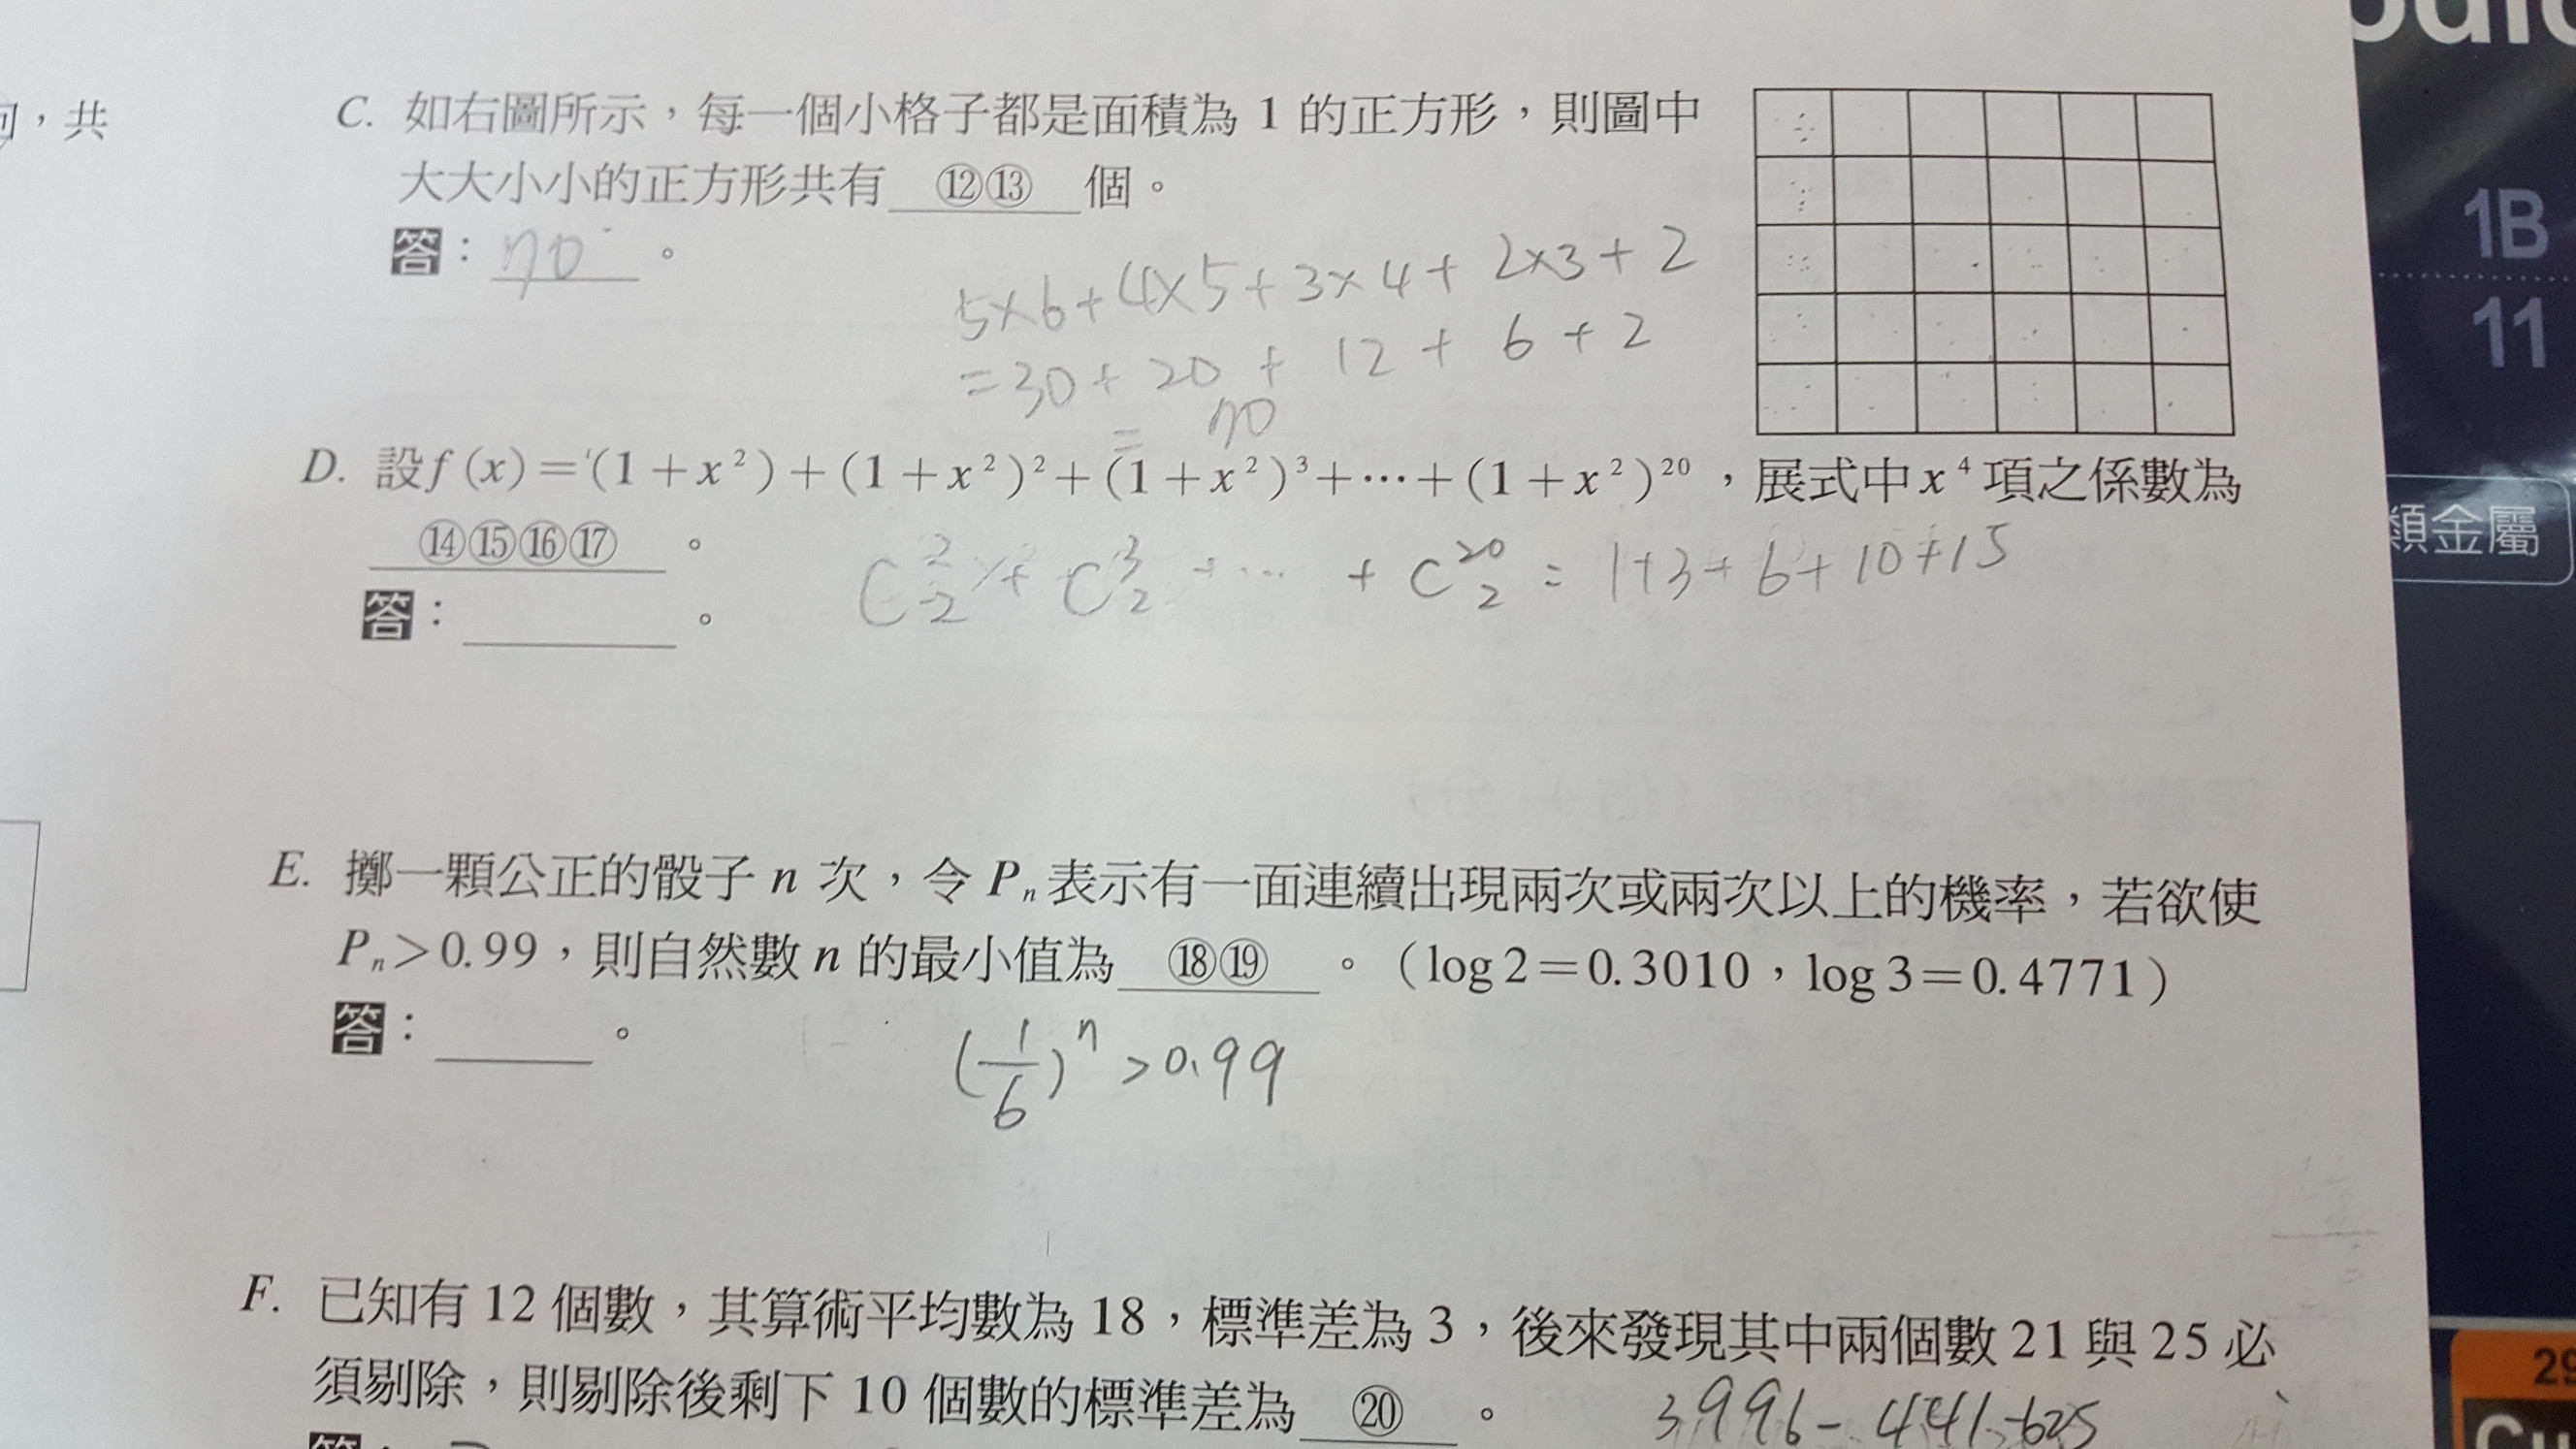 ，共
C. 如右圖所示，每一個小格子都是面積為 1 的正方形，則圖中
大大小小的正方形共有 ⑫⑬ 個。
答：70。
5×6+4×5+3×4+2×3+2
=30+20+12+6+2
=70
D. 設f(x)=(1+x²)+(1+x²)²+(1+x²)³+⋯+(1+x²)²⁰，展式中x⁴項之係數為
⑭⑮⑯⑰。
C²₂+C³₂+⋯+C²⁰₂=1+3+6+10+15
答：。
E. 擲一顆公正的骰子 n 次，令 Pₙ 表示有一面連續出現兩次或兩次以上的機率，若欲使
Pₙ>0.99，則自然數 n 的最小值為 ⑱⑲ 。（log2=0.3010，log3=0.4771）
答：。
(1/6)ⁿ>0.99
F. 已知有 12 個數，其算術平均數為 18，標準差為 3，後來發現其中兩個數 21 與 25 必
須剔除，則剔除後剩下 10 個數的標準差為 ⑳ 。
3996-441-625
答：
1B
11
類金屬
29
Cu